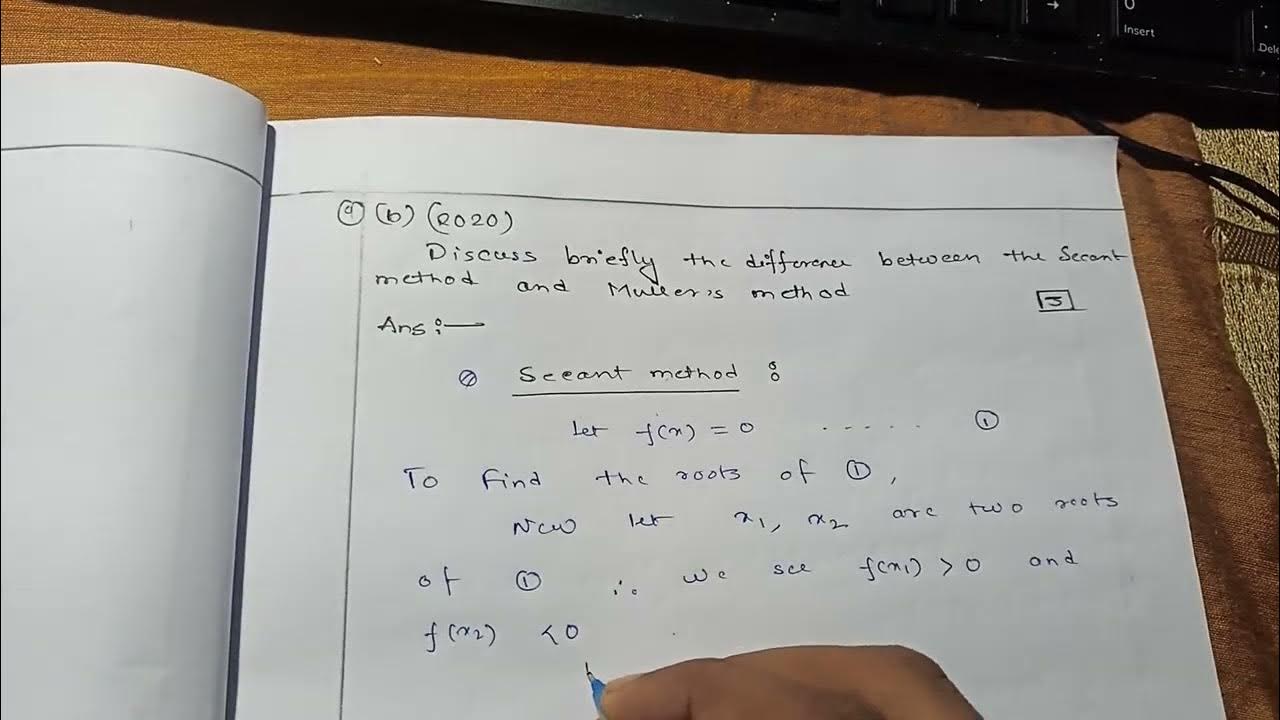 0
→
Insert
Del
9 (b) (2020)
Discuss briefly the difference between the Secant
method and Muller's method
5
Ans :—
Secant method :
Let f(x) = 0 ..... ①
To find the roots of ①,
Now let x₁, x₂ are two roots
of ① ∴ we see f(x₁) > 0 and
f(x₂) < 0